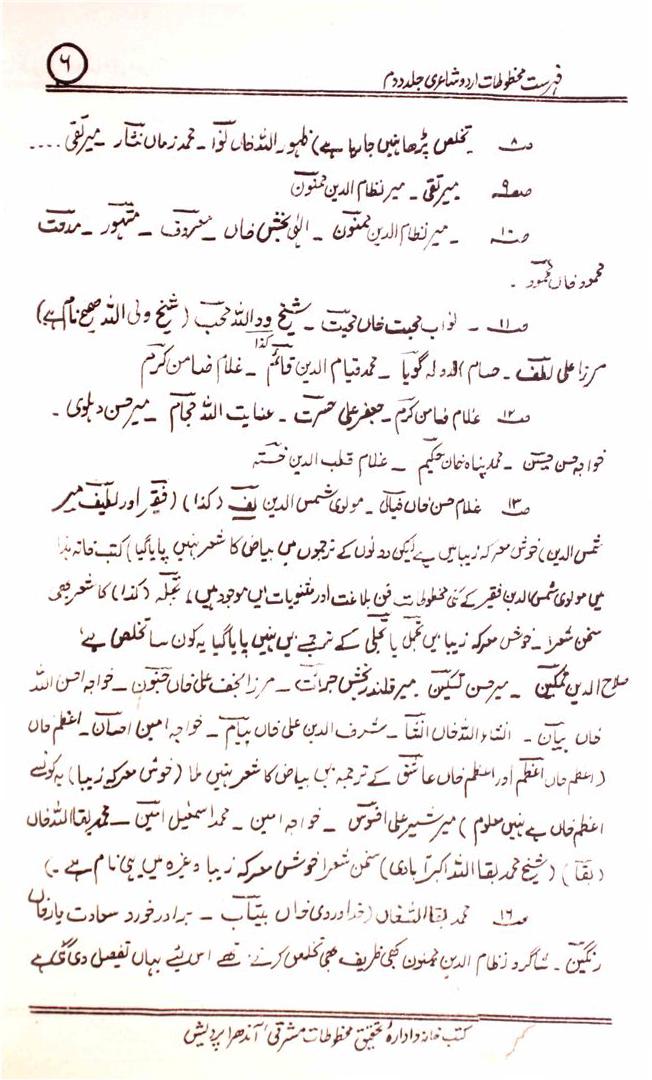 ۶
فہرست مخطوطات اردو شاعری جلد دوم
صـ۸ تخلص پڑھا نہیں جا رہا ہے) ظہور اللہ خاں نوا ۔ محمد زماں نثار ۔ میر تقی ....
صـ۹ میر تقی ۔ میر نظام الدین ممنون
صـ۱۰ ۔ میر نظام الدین ممنون ۔ الٰہی بخش خاں ۔ معروف ۔ مشہور ۔ مدقت
محمود خاں محمود ۔
صـ۱۱ ۔ نواب محبت خاں محبت ۔ شیخ ود اللہ محب (شیخ ولی اللہ صحیح نام ہے)
کذا
مرزا علی لطف ۔ صام الدولہ گویا ۔ محمد قیام الدین قائم ۔ غلام ضامن کرم
صـ۱۲ غلام ضامن کرم ۔ جعفر علی حسرت ۔ عنایت اللہ حجام ۔ میر حسن دہلوی ۔
خواجہ حسن حسن ۔ محمد پناہ خان حکیم ۔ غلام قطب الدین خستہ
صـ۱۳ غلام حسن خاں خیالی ۔ مولوی شمس الدین لف (کذا) (فقیر اور لطیف میر
شمس الدین) خوش معرکہ زیبا میں ہے لیکن دونوں کے ترجموں میں بیاض کا شعر نہیں پایا گیا) کتب خانہ ہذا
میں مولوی شمس الدین فقیر کے کئی مخطوطات فن بلاغت اور مثنویات میں موجود ہیں) تجلہ (کذا) کا شعر بھی
سخن شعرا ۔ خوش معرکہ زیبا میں تجمل یا تجلی کے ترجمے میں نہیں پایا گیا یہ کون سا تخلص ہے
صلاح الدین تمکین ۔ میر حسن تسکین میر قلندر بخش جرأت ۔ مرزا نجف علی خاں جنون ۔ خواجہ احسن اللہ
خاں بیان ۔ انشاء اللہ خاں انشا ۔ شرف الدین علی خاں پیام ۔ خواجہ امین احسان ۔ اعظم خاں
(اعظم خاں اعظم اور اعظم خاں عاشق کے ترجمہ میں بیاض کا شعر نہیں ملا (خوش معرکہ زیبا) یہ کونسے
اعظم خاں ہے نہیں معلوم) میر شیر علی افسوس ۔ خواجہ امین ۔ محمد اسمٰعیل امین ۔ محمد بقا اللہ خاں
(بقا) (شیخ محمد بقا اللہ اکبرآبادی) سخن شعرا خوش معرکہ زیبا وغیرہ میں یہی نام ہے ۔)
صـ۱۶ محمد بقا اللہ خاں (خداوردی خاں بیتاب ۔ برادر خورد سعادت یار خاں
رنگین ۔ شاگرد نظام الدین ممنون کبھی ظریف بھی تخلص کرتے تھے اس لئے یہاں تفصیل دی گئی ہے
کتب خانہ و ادارۂ تحقیق مخطوطات مشرقی، آندھرا پردیش